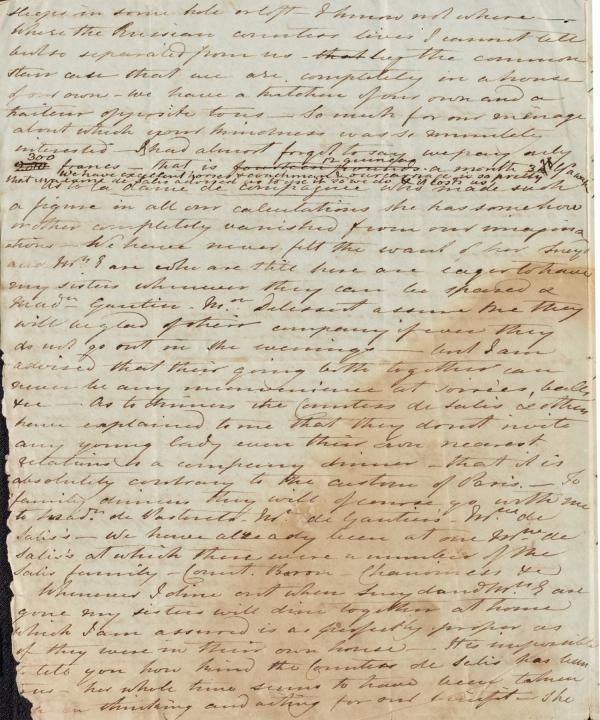 sleeps in some hole or loft – I know not where –
Where the Russian countess lives I cannot tell
but so separated from us – by the common
stair case that we are completely in a house
of our own – we have a kitchen of our own and a
traiteur opposite to us – So much for our ménage
about which your kindness was so
interested – I had almost forgot to say we pay only
300 francs – that is a month
We have excellent horses & coachman & our carriage is so pretty
As to la dame de compagnie who made such
a figure in all our calculations she has somehow
or other completely vanished from our imagina
tions – We have never felt the want of her Sneyd
and Mrs E are who are still here are eager to have
my sisters whenever they can be spared &
Madm Gautier Mr Delessert assure me they
will be glad of their company if ever they
do not go out in the evenings – but I am
advised that their going both together can
never be any inconvenience at soirées, balls,
&c – As to dinners the Countess de Salis & others
have explained to me that they do not invite
any young lady even their own nearest
relations to a company dinner – that it is
absolutely contrary to the custom of Paris. – To
family dinners they will of course go with me
to Madm de Mr de Gautiers Mme de
Salis's – We have already been at one Mme de
Salis's at which there were a number of the
Salis family – Count Baron – Chanoinesses &c
Whenever I dine out when Sneyd and Mrs E are
gone my sisters will dine together at home
which I am assured is as perfectly proper as
if they were in their own house – It is impossible
to tell you how kind the Countess de Salis has been
to us – her whole time seems to have been taken
up in thinking and acting for our benefit – She